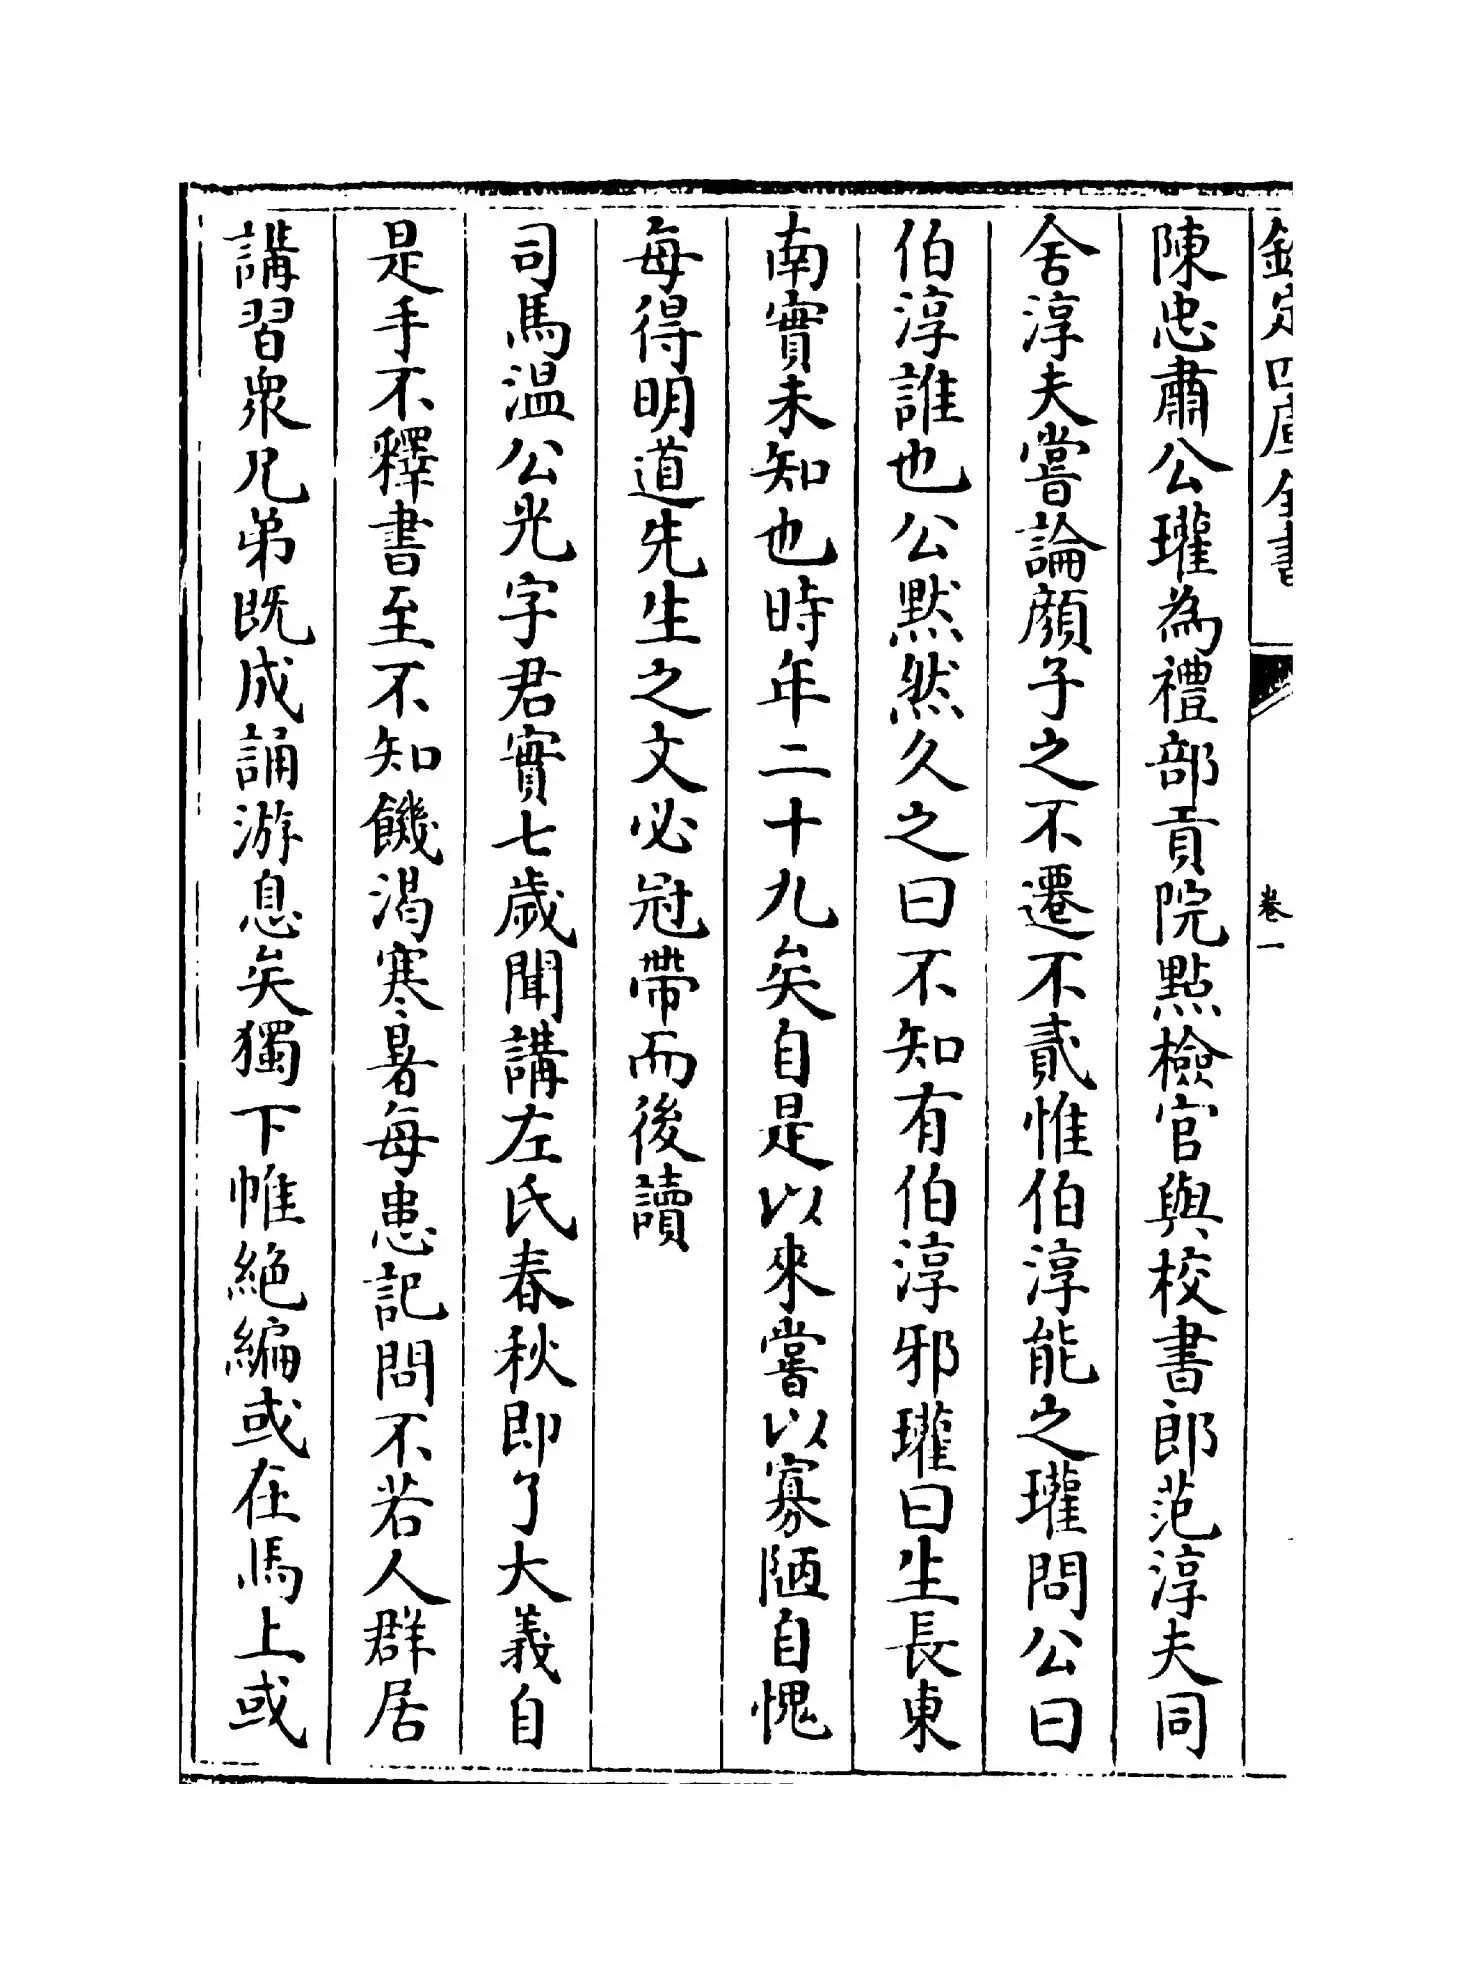 欽定四庫全書
卷一
陳忠肅公瓘為禮部貢院點檢官與校書郎范淳夫同
舍淳夫嘗論顔子之不遷不貳惟伯淳能之瓘問公曰
伯淳誰也公默然久之曰不知有伯淳邪瓘曰生長東
南實未知也時年二十九矣自是以來嘗以寡陋自愧
每得明道先生之文必冠帶而後讀
司馬温公光字君實七歲聞講左氏春秋即了大義自
是手不釋書至不知饑渴寒暑每患記問不若人群居
講習衆兄弟既成誦游息矣獨下帷絶編或在馬上或